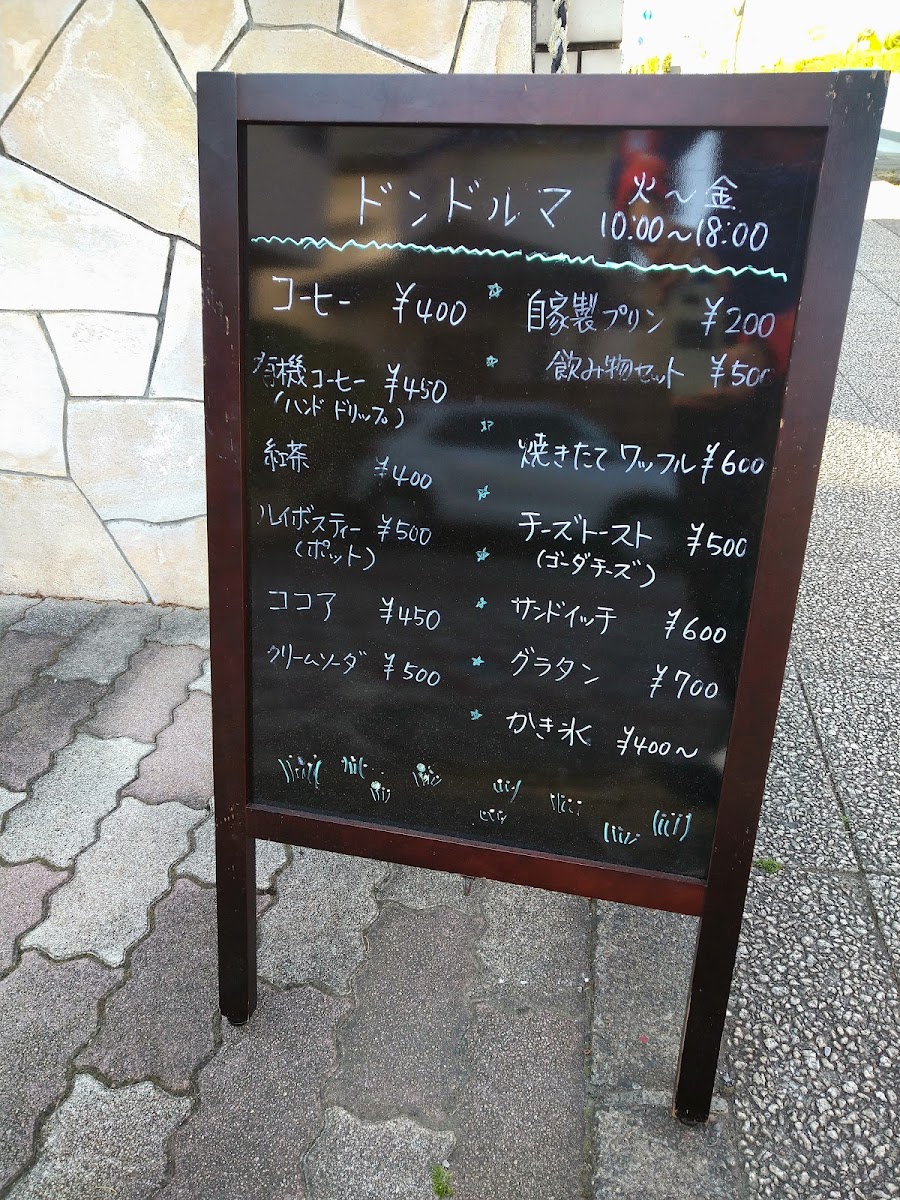 ドンドルマ 火～金
10:00～18:00
コーヒー ¥400
有機コーヒー ¥450
(ハンドドリップ)
紅茶 ¥400
ルイボスティー ¥500
(ポット)
ココア ¥450
クリームソーダ ¥500
自家製プリン ¥200
飲み物セット ¥500
焼きたてワッフル ¥600
チーズトースト ¥500
(ゴーダチーズ)
サンドイッチ ¥600
グラタン ¥700
かき氷 ¥400～